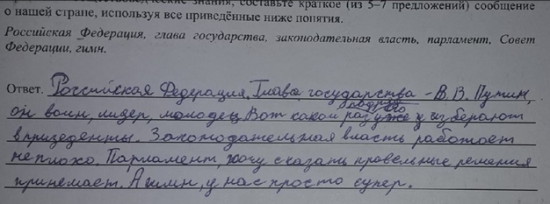 составьте краткое (из 5–7 предложений) сообщение
о нашей стране, используя все приведённые ниже понятия.
Российская Федерация, глава государства, законодательная власть, парламент, Совет
Федерации, гимн.
Ответ. Российская Федерация. Глава государства – В.В. Путин,
он воин, лидер, молодец. Вот какой раз уже изберают
в призеденты. Законодательная власть работает
неплохо. Парламент, хочу сказать правельные решения
принемает. А гимн, у нас просто супер.